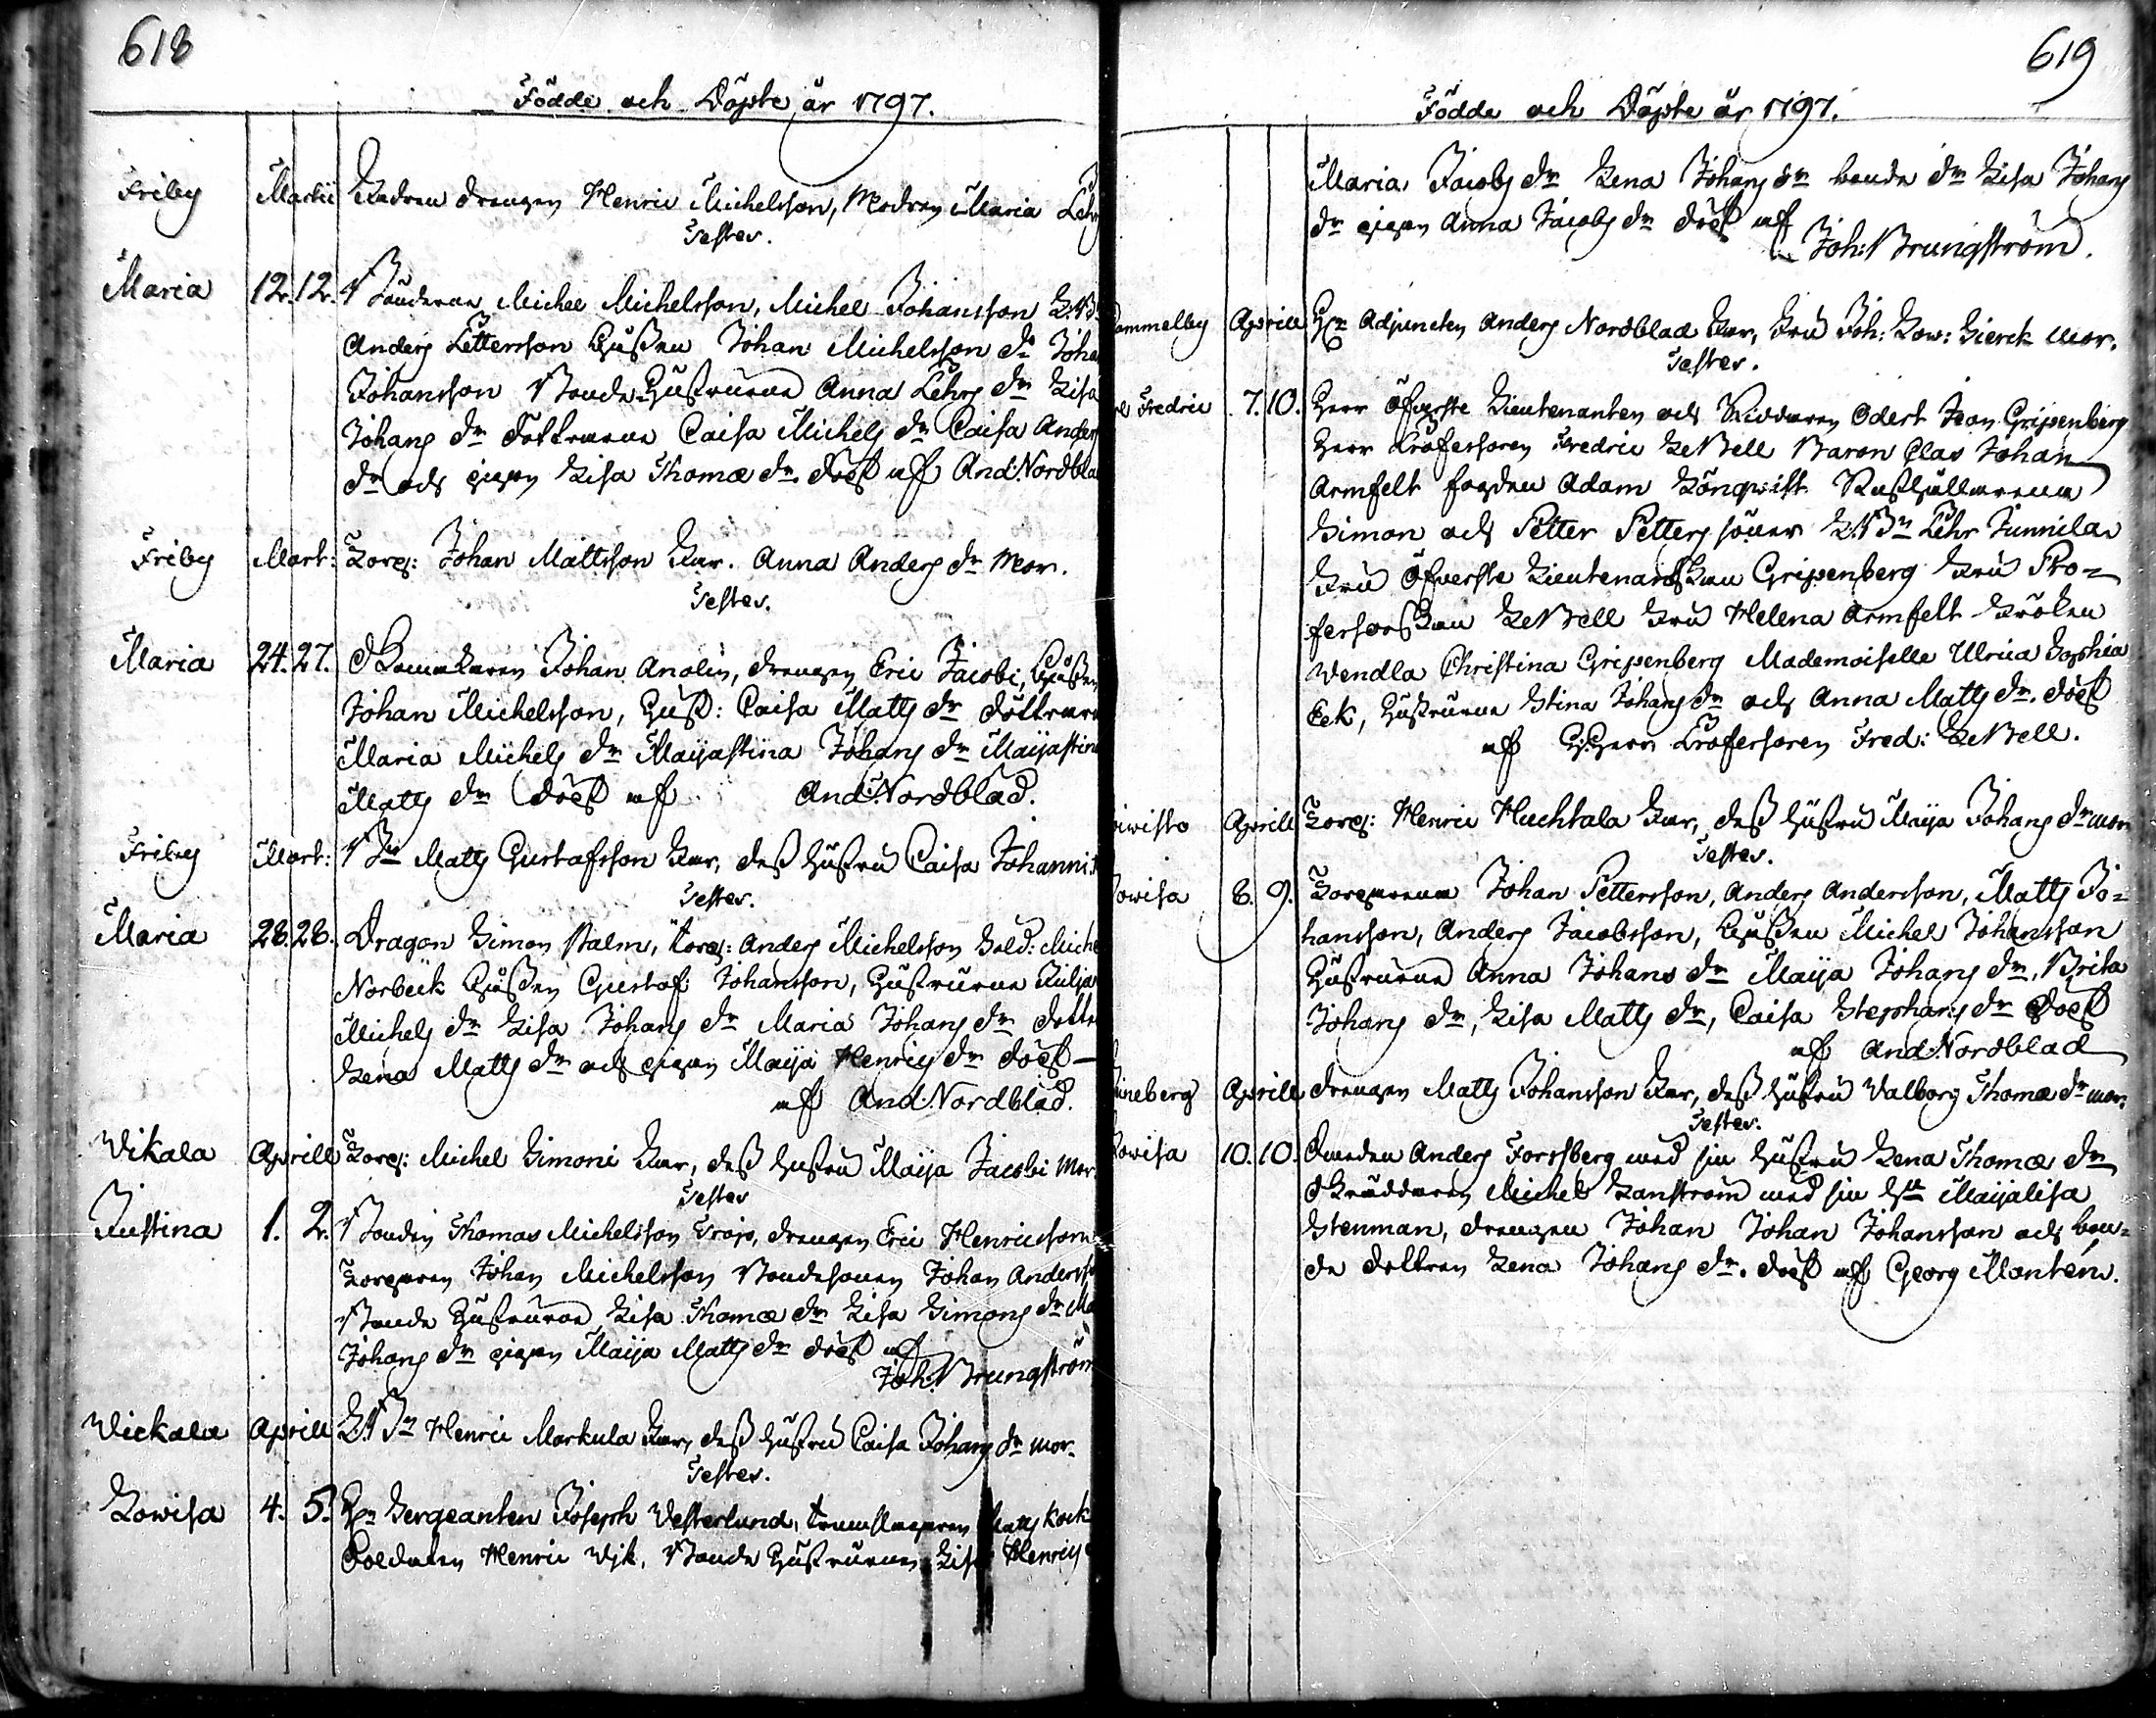 618
Födde och Döpte år 1797.
Friby Martii Fadren drengen Henric Michelsson, Modren Maria Pehrs
Testes.
Maria 12. 12. Bönderne Michel Michelsson, Michel Johansson L:B:
Anders Pettersson Gossen Johan Michelsson do Joha
Johansson Bonde Hustrurne Anna Pehrs dr Lisa
Johans dr Dottrarne Caisa Michels dr Caisa Anders
dr och pigan Lisa Thomæ dr. döpt af And: Nordbla
Friby Mart: Torp: Johan Mattsson Far. Anna Anders dr Mor.
Testes.
Maria 24. 27. Skomakaren Johan Anolin, drengen Eric Jacobi, Gossen
Johan Michelsson, Hust: Caisa Matts dr döttrarne
Maria Michels dr Maijastina Johans dr Maijastin
Matts dr döpt af And: Nordblad.
Friby Mart: Bn Matts Gustafsson Far, dess hustru Caisa Johannis
Testes.
Maria 28. 28. Dragon Simon Malm, torp: Anders Michelsson Sold: Miche
Norbeck Gossen Gustaf Johansson, Hustrurne Julja
Michels dr Lisa Johans dr Maria Johans dr dottr
Lena Matts dr och pigan Maija Henrics dr döpt
af And: Nordblad.
Vikala Aprill Torp: Michel Simoni Far, dess hustru Maija Jacobi Mor.
Testes
Justina 1. 2. Bonden Thomas Michelsson Trojs, drengen Eric Henricsson
Torparen Johan Michelsson Bondesonen Johan Anderss
Bonde Hustrurne Lisa Thomæ dr Lisa Simons dr Ma
Johans dr pigan Maija Matts dr döpt af
Joh: Brungström
Vickala Aprill L:Bn Henric Markula Far, dess hustru Caisa Johans dr mor.
Testes.
Lowisa 4. 5. Hr Sergeanten Joseph Vesterlund, trumslagaren Matts Kock
Soldaten Henric Wik, Bonde Hustrurne Lisa Henrics
619
Födde och Döpte år 1797.
Maria Jacobs dr Lena Johans dr bonde dr Lisa Johans
dr pigan Anna Jacobs dr döpt af
Joh: Brungström.
ammelby Aprill Hr Adjuncten Anders Nordblad Far, Fru Joh: Low: Gierck Mor.
Testes.
Fredric 7. 10. Herr Öfverste Lieutenanten och Riddaren Odert Jean Gripenberg
Herr Professoren Fredric LeBell Baron Clas Johan
Armfelt fogden Adam Lönqvist Rusthållarena
Simon och Petter Petters söner L:Bn Pehr Junnila
Fru Öfverste Lieutenantskan Gripenberg Fru Pro-
fessorskan LeBell Fru Helena Armfelt Fröken
Vendla Christina Gripenberg Mademoiselle Ulrica Sophia
Eek, Hustrurne Stina Johans dr och Anna Matts dr. döpt
af Herr Professoren Fred: LeBell.
iwisto Aprill Torp: Henric Huchtala Far, dess hustru Maija Johans dr mor
Testes.
owisa 8. 9. Torparena Johan Pettersson, Anders Andersson, Matts Jo-
hansson, Anders Jacobsson, Gossen Michel Johansson
Hustrurne Anna Johans dr Maija Johans dr, Brita
Johans dr, Lisa Matts dr, Caisa Stephans dr Döpt
af And: Nordblad
neberg Aprill drengen Matts Johansson Far, dess hustru Valborg Thomæ dr mor:
Testes.
owisa 10. 10. Smeden Anders Forssberg med sin hustru Lena Thomæ dr
Skräddaren Michel Lanström med sin hst Maijalisa
Stenman, drengen Johan Johan Johansson och bon-
de dottren Lena Johans dr. döpt af Georg Montén.